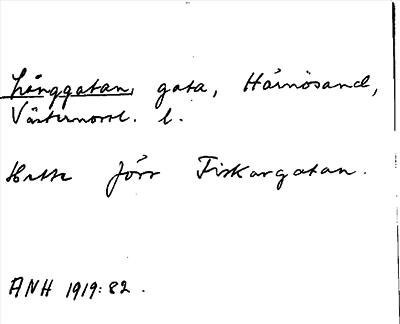 Långgatan, gata, Härnösand,
Västernorrl. l.
Hette förr Fiskargatan.
ANH 1919:82.